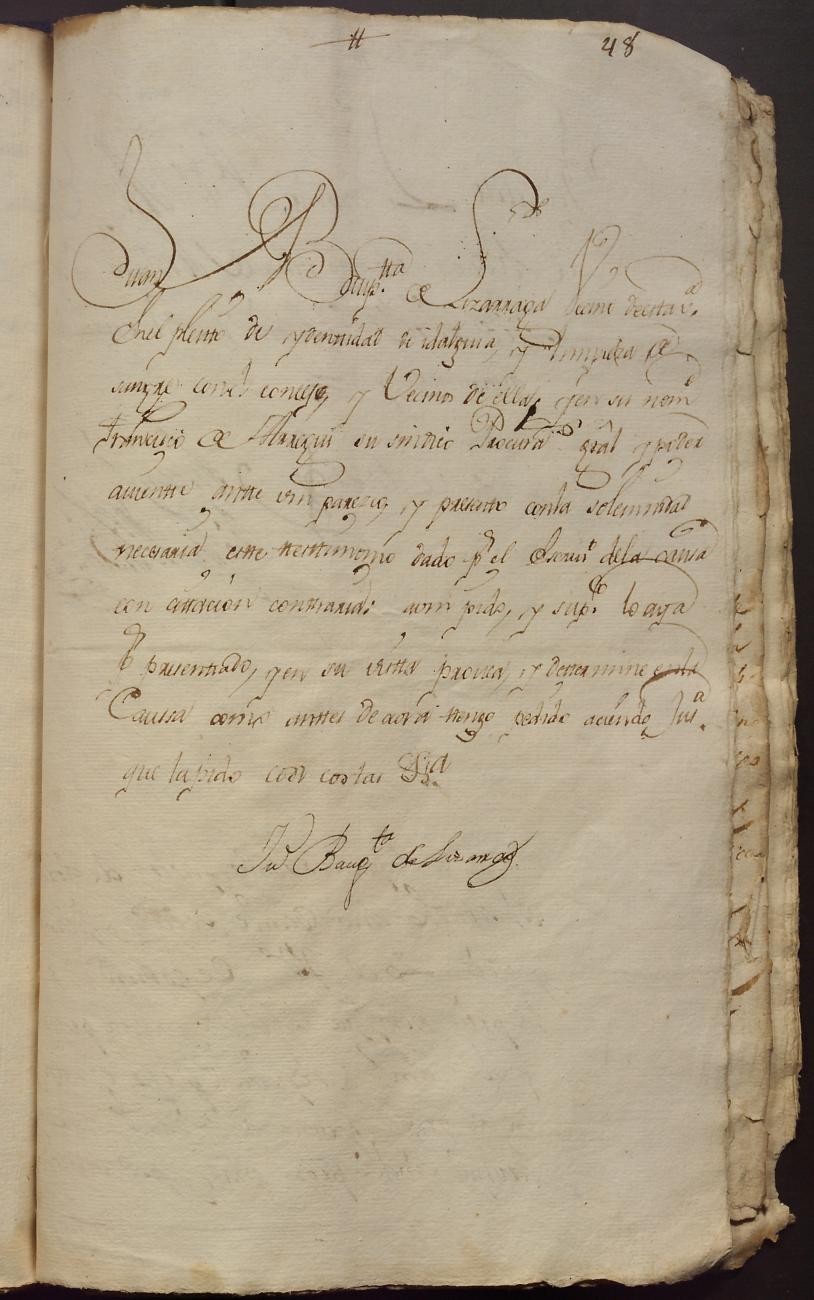 48
Sor
Juan Baup.tta de Lizarraga Vecino de esta v.a
En el pleitto de ydentidad de idalguia, y limpieza de
sangre con el concejo, y Vecinos de ella, y en su nomê
Francisco de su sindico Procurador gral y poder
aviente antte vm parezco, y presentto con la solemnidad
necesaria este testtimonio dado p.r el Escriv.o de la causa
con cittacion conttraria; a vm pido, y sup.co lo aya
p.r presenttado, y en su vistta provea, y dettermine en la
Causa como anttes de aora ttengo pedido aciendo Jus.a
que la pido con costas &.a
Jn Baup.ta de Lizarraga